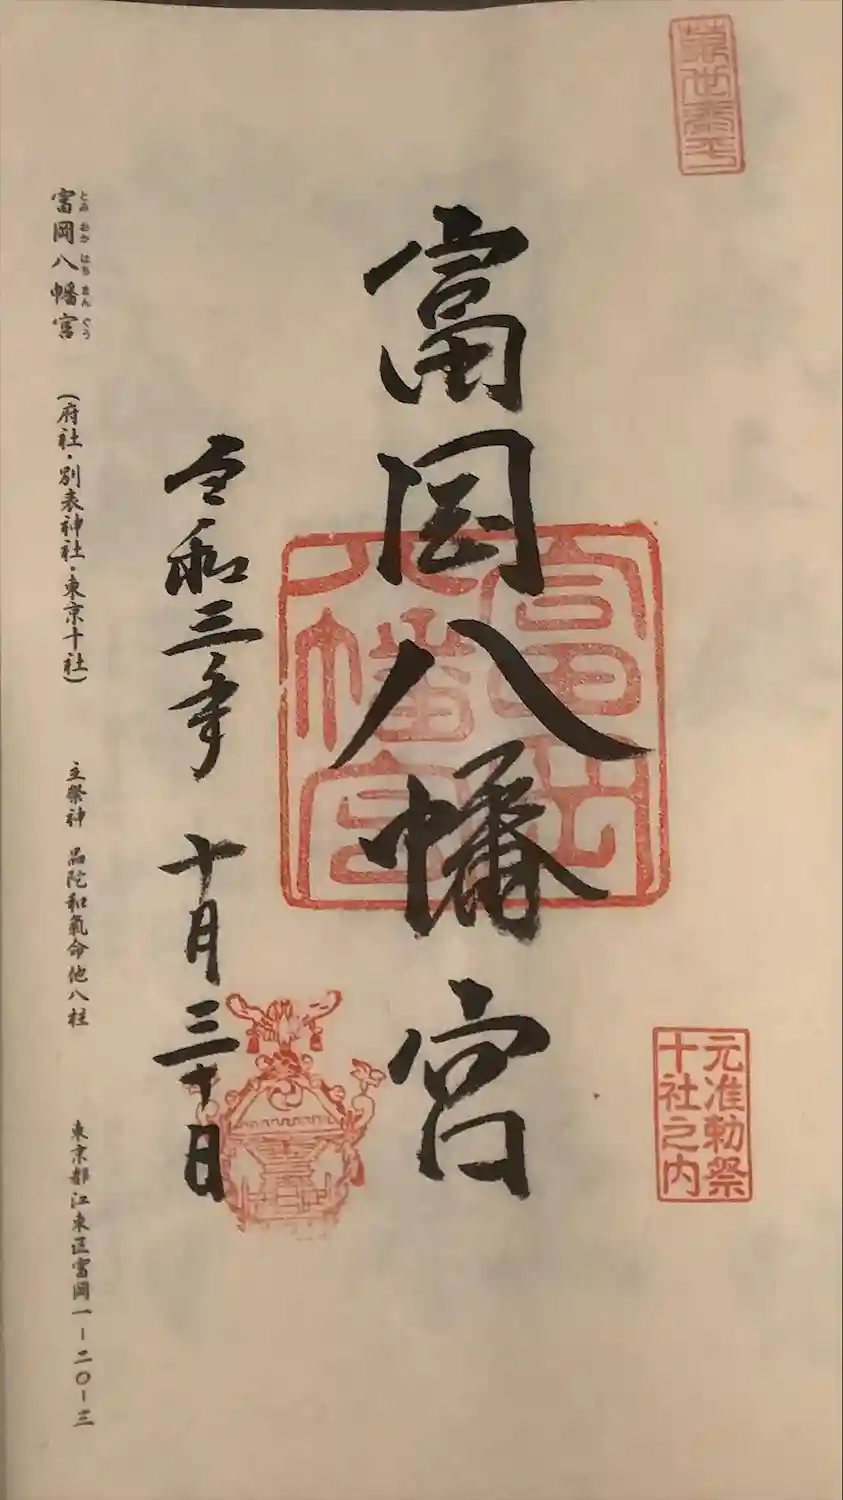 萬世泰平
元准勅祭
十社之内
富岡八幡宮
富岡
八幡宮
令和三年 十月三十日
とみ おか はち まん ぐう
富岡八幡宮 (府社・別表神社・東京十社) 主祭神 品陀和氣命他八柱 東京都江東区富岡一ー二〇ー三